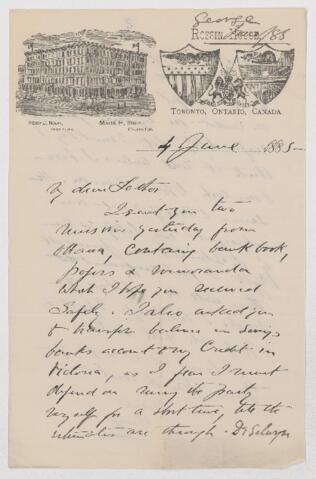 George
ROSSIN HOUSE
TORONTO, ONTARIO, CANADA
4 June 1885
My dear
I sent you two
yesterday from
Ottawa, containing bank book,
papers & memoranda
which I hope you received
safely. I also asked you
to transfer balance in savings
banks account to my credit in
Victoria, as I fear I must
depend on running the party
myself for a short time, till the
estimates are through.